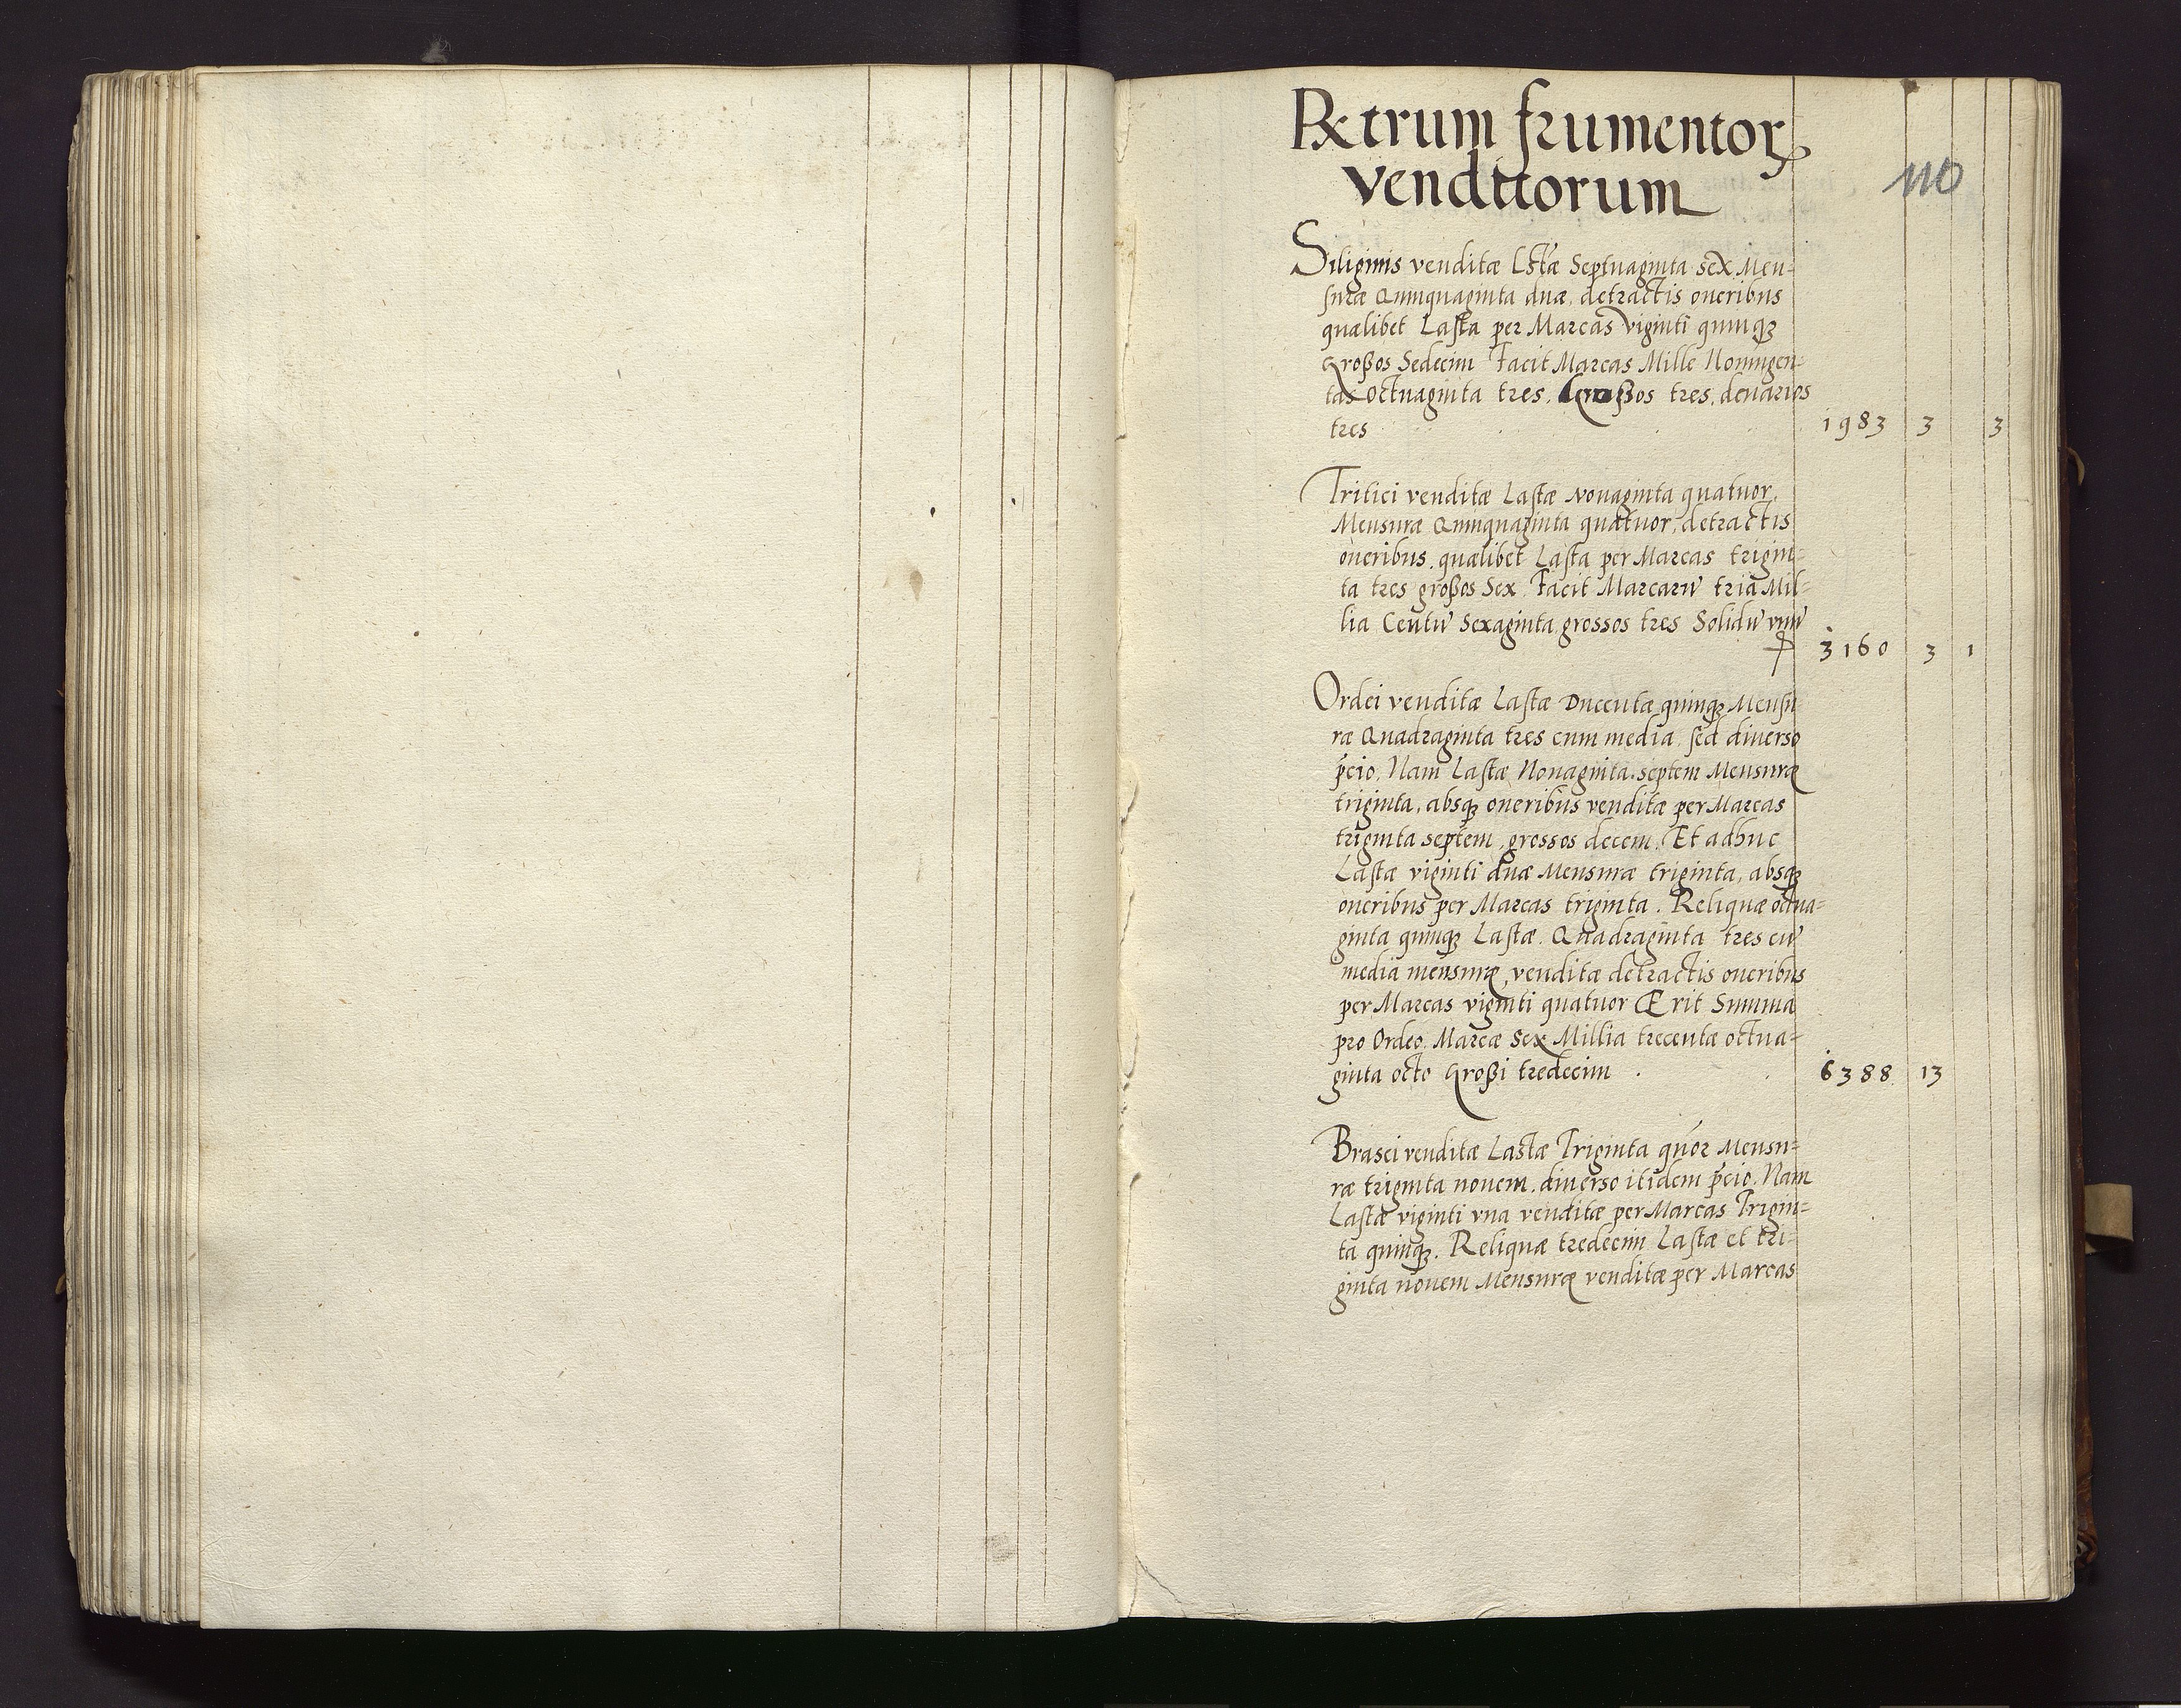 Rxtrum frumentorꝝ
venditorum
110
Siliginis venditæ Lstæ Septuaginta sex Men=
suræ Quinquaginta duæ, detractis oneribus
quælibet Lasta per Marcas viginti quinqꝫ
großos Sedecim Facit Marcas Mille Noningen=
tas octuaginta tres. großos tres, denarios
tres 1983 3 3
Tritici venditæ Lastæ Nonaginta quatuor,
Mensuræ Quinquaginta quatuor, detractis
oneribus, quælibet Lasta per Marcas trigin=
ta tres großos Sex Facit Marcarū tria Mil=
lia Centū Sexaginta grossos tres Solidū vnū
3160 3 1
Ordei venditæ Lastæ Ducentæ quinqꝫ Mensu
ræ Quadraginta tres cum media sed diuerso
p̄cio. Nam Lastæ Nonaginta septem Mensuræ
triginta, absqꝫ oneribus venditæ per Marcas
triginta septem, grossos decem. Et adhuc
Lastæ viginti duæ Mensuræ triginta, absqꝫ
oneribus per Marcas triginta. Reliquæ octua=
ginta quinqꝫ Lastæ. Quadraginta tres cū
media mensuræ, venditæ detractis oneribus
per Marcas viginti quatuor Erit Summa
pro Ordeo, Marcæ Sex Millia trecentæ octua=
ginta octo Großi tredecim . 6388 13
Brasei venditæ Lastæ Triginta qūor Mensu=
ræ triginta nouem, diuerso itidem p̄cio. Nam
Lastæ viginti vna venditæ per Marcas Trigin=
ta quinqꝫ. Reliquæ tredecim Lastæ et tri=
ginta nouem Mensuræ venditæ per Marcas